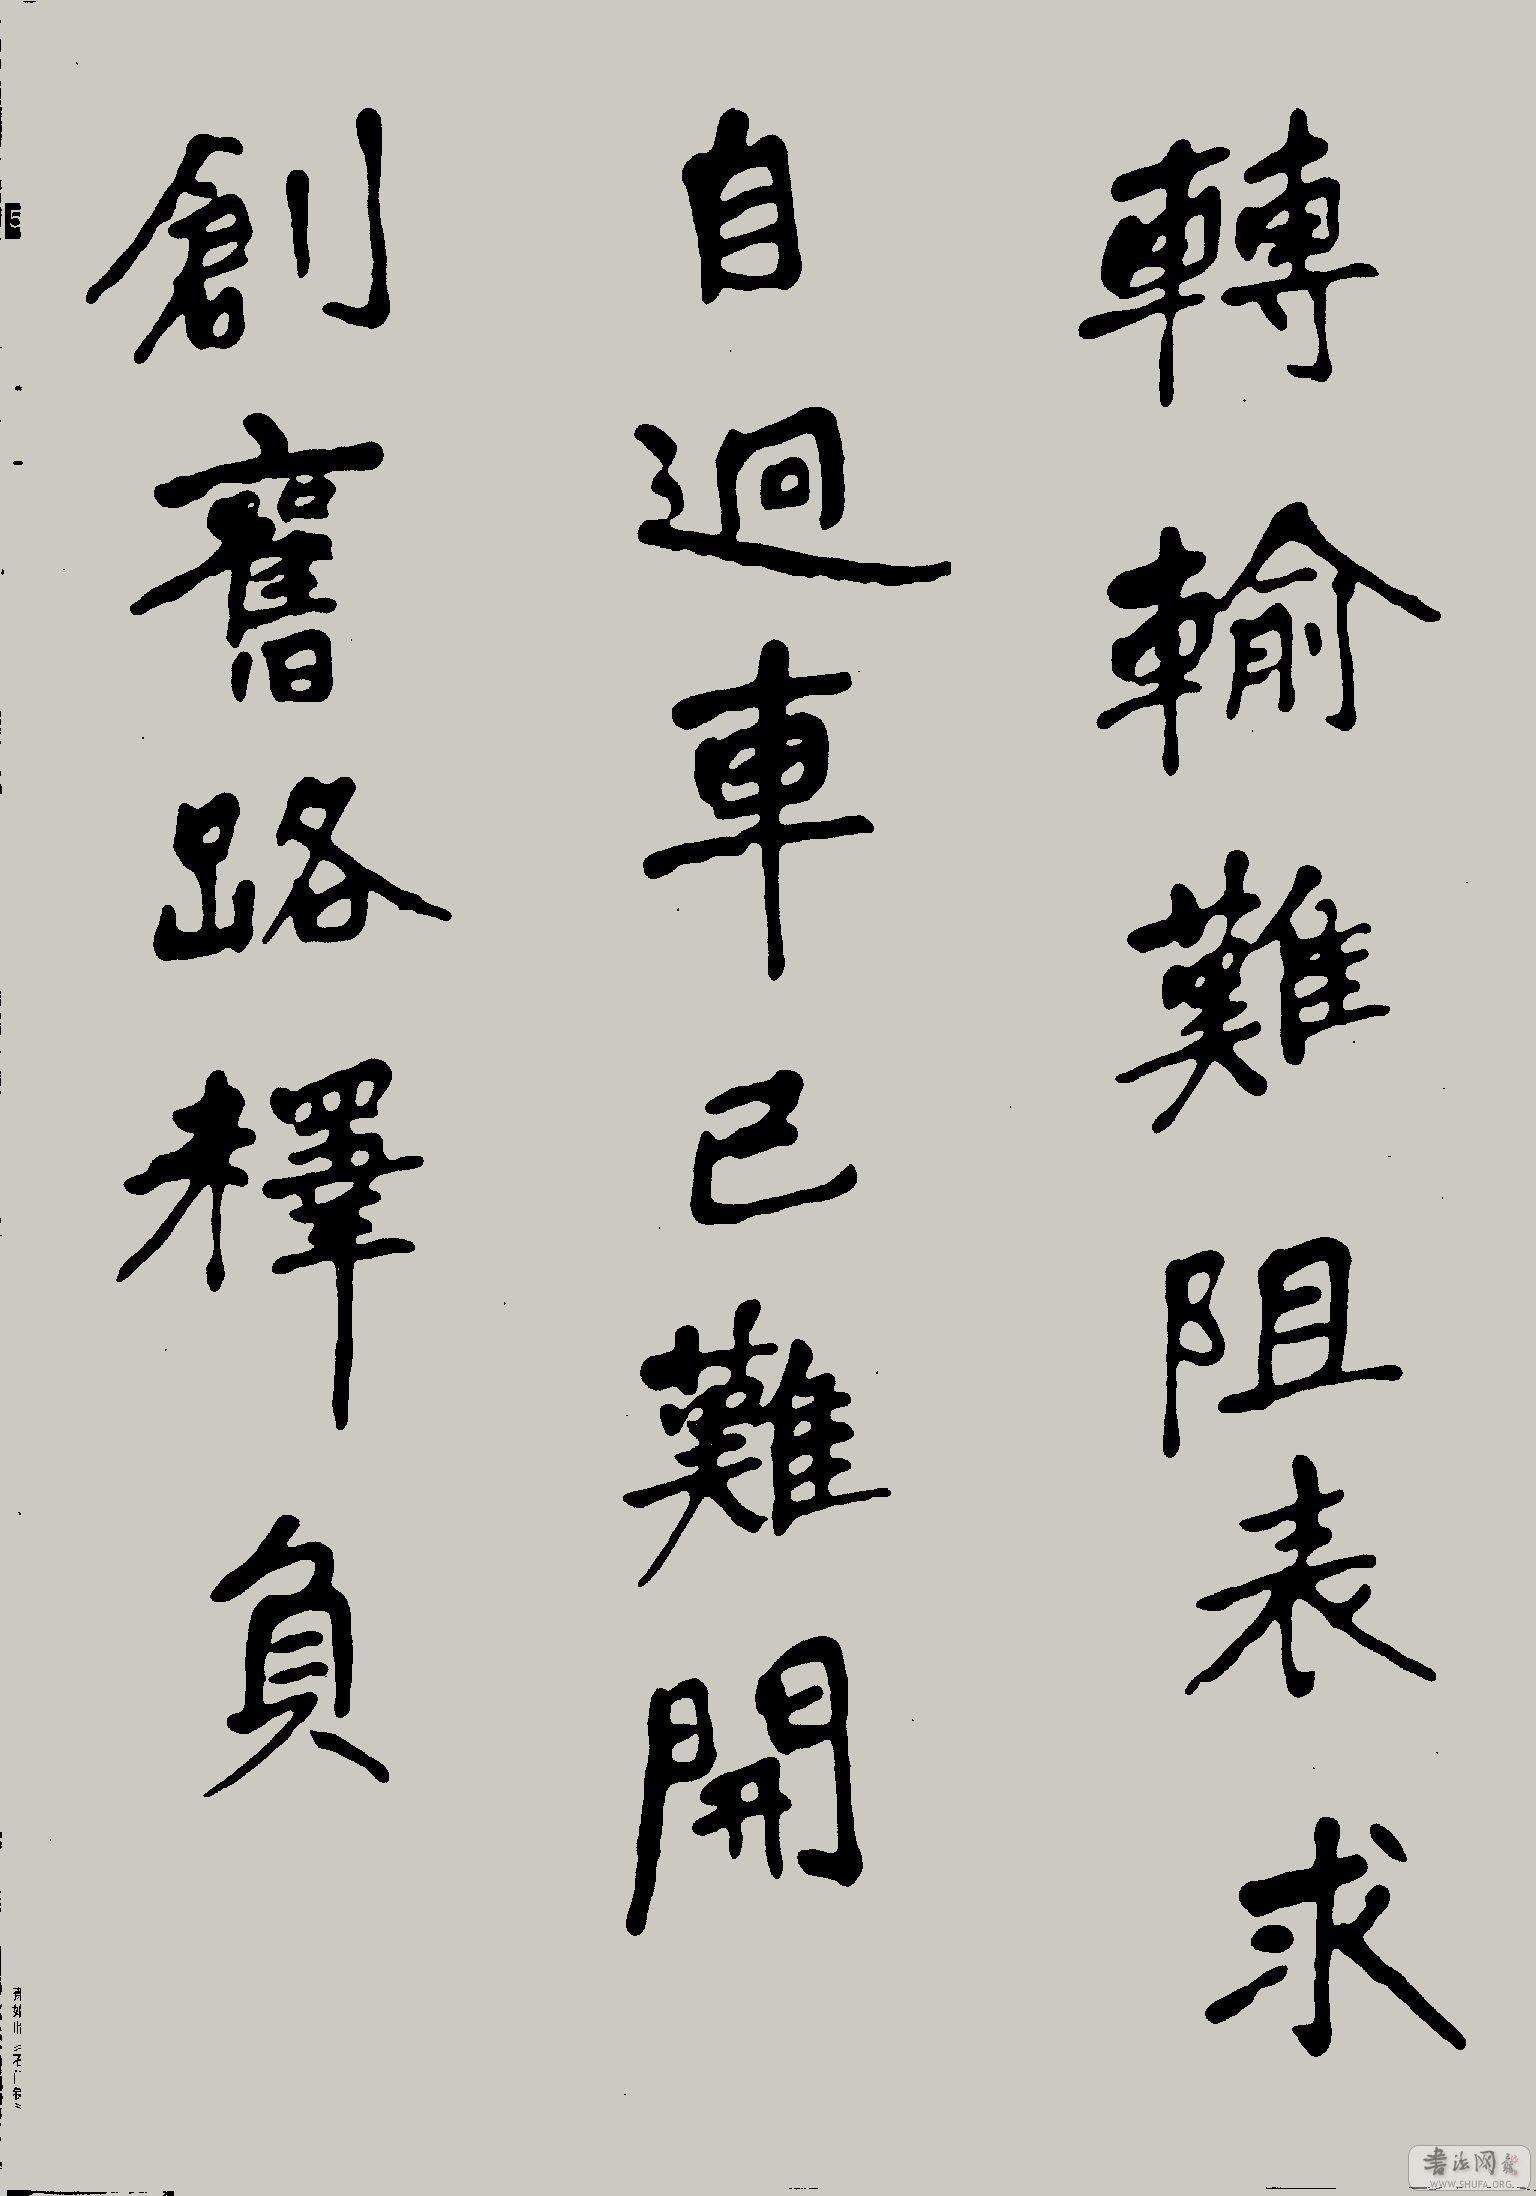 轉輸難阻表求
自迥車已難開
創舊路釋負
書法网
WWW.SHUFA.ORG